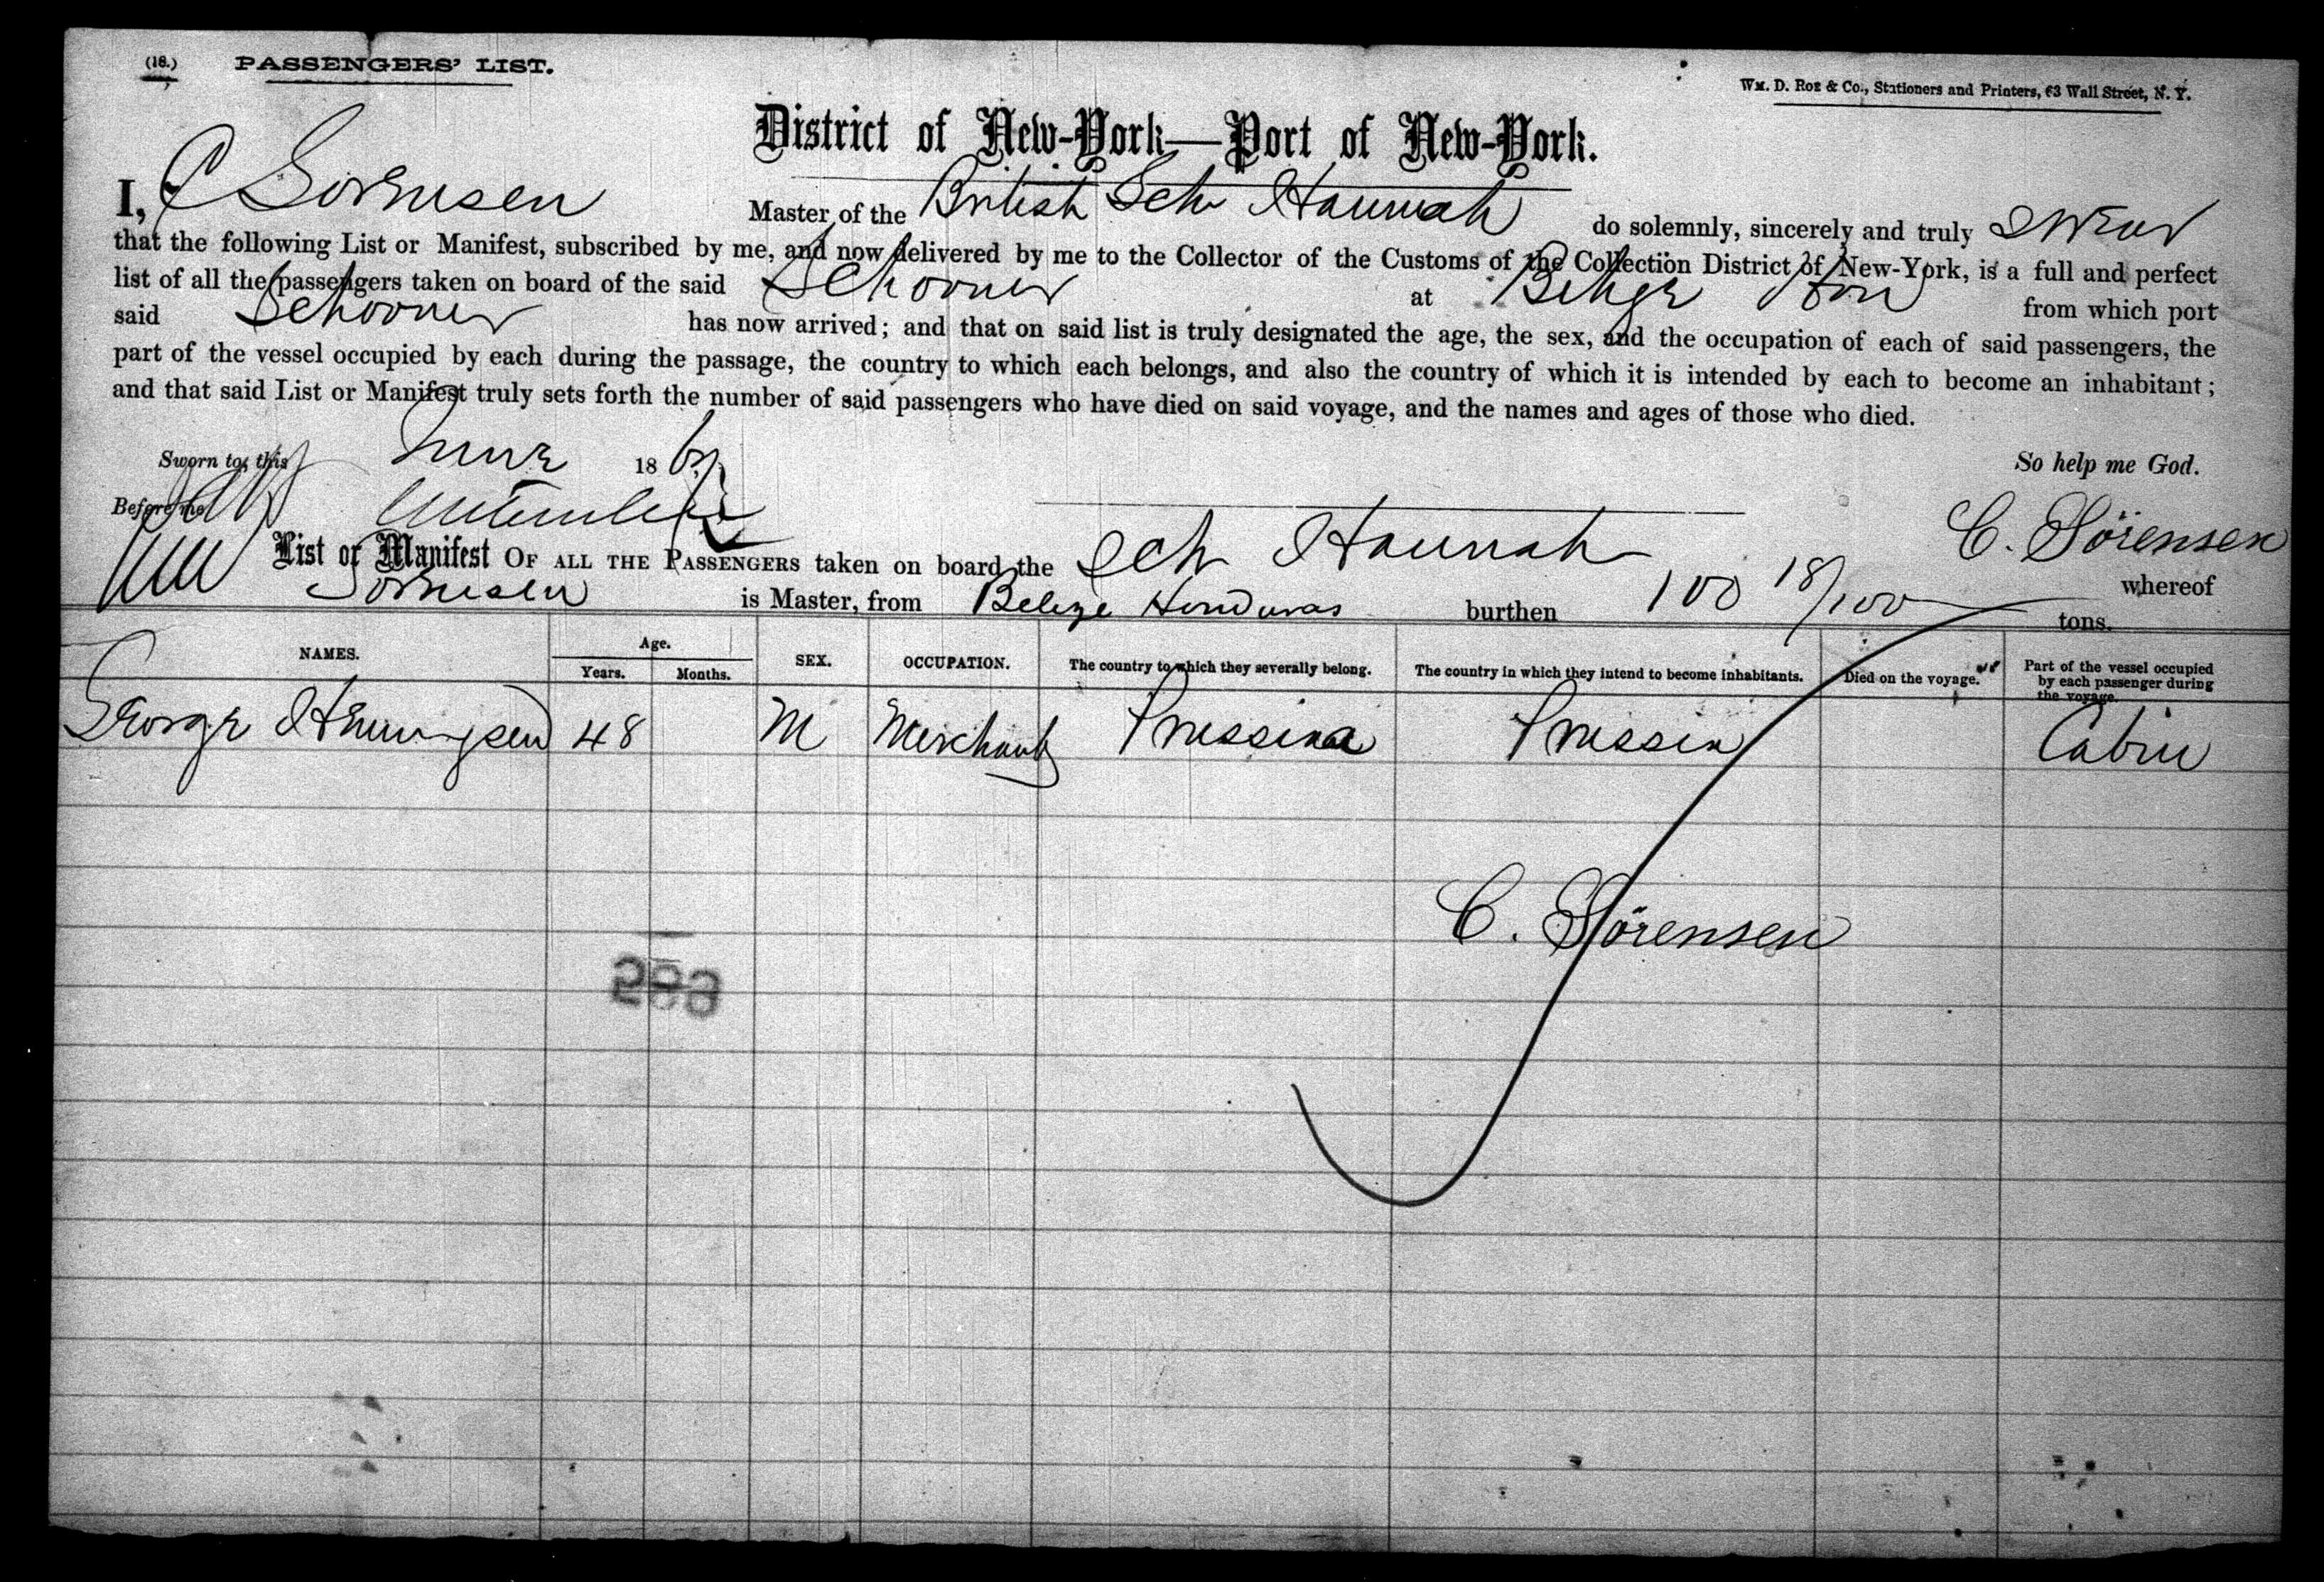 (18.) PASSENGERS' LIST.
Wm. D. Roe & Co., Stationers and Printers, 63 Wall Street, N. Y.
District of New-York—Port of New-York.
I, C Sorensen Master of the British Schr Hannah do solemnly, sincerely and truly swear
that the following List or Manifest, subscribed by me, and now delivered by me to the Collector of the Customs of the Collection District of New-York, is a full and perfect
list of all the passengers taken on board of the said Schooner at Belize Hon from which port
said Schooner has now arrived; and that on said list is truly designated the age, the sex, and the occupation of each of said passengers, the
part of the vessel occupied by each during the passage, the country to which each belongs, and also the country of which it is intended by each to become an inhabitant;
and that said List or Manifest truly sets forth the number of said passengers who have died on said voyage, and the names and ages of those who died.
Sworn to, this June 18
So help me God.
Before me
C. Sörensen
List or Manifest OF ALL THE PASSENGERS taken on board the Schr Hannah whereof
Sorensen is Master, from Belize Honduras burthen 100 18/100 tons.
NAMES. Age. Years. Months. SEX. OCCUPATION. The country to which they severally belong. The country in which they intend to become inhabitants. Died on the voyage. Part of the vessel occupied by each passenger during the voyage.
George 48 M Merchant Prussia Prussia Cabin
C. Sörensen